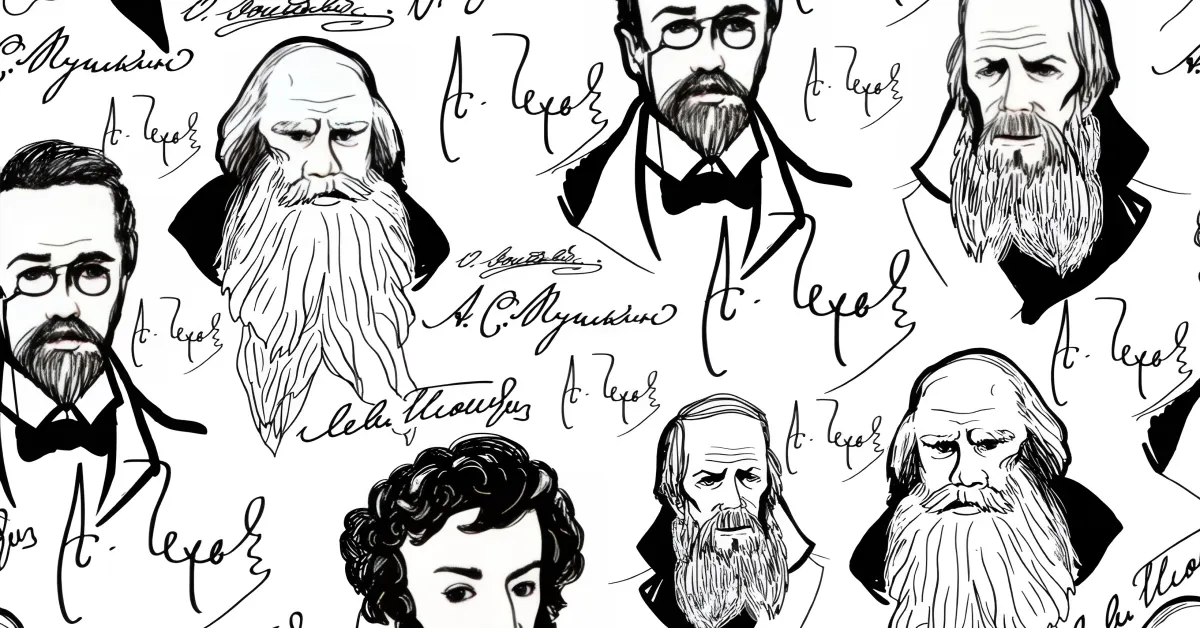 Ѳ. Достоевс.
А. С. Пушкинъ
А. Чеховъ
А. Чеховъ
А. Чеховъ
А. Чеховъ
Ѳ. Достоевс.
А. С. Пушкинъ
А. Чеховъ
А. Чеховъ
А. Чеховъ
А. Чеховъ
Левъ Толстой
А. Чеховъ
А. Чеховъ